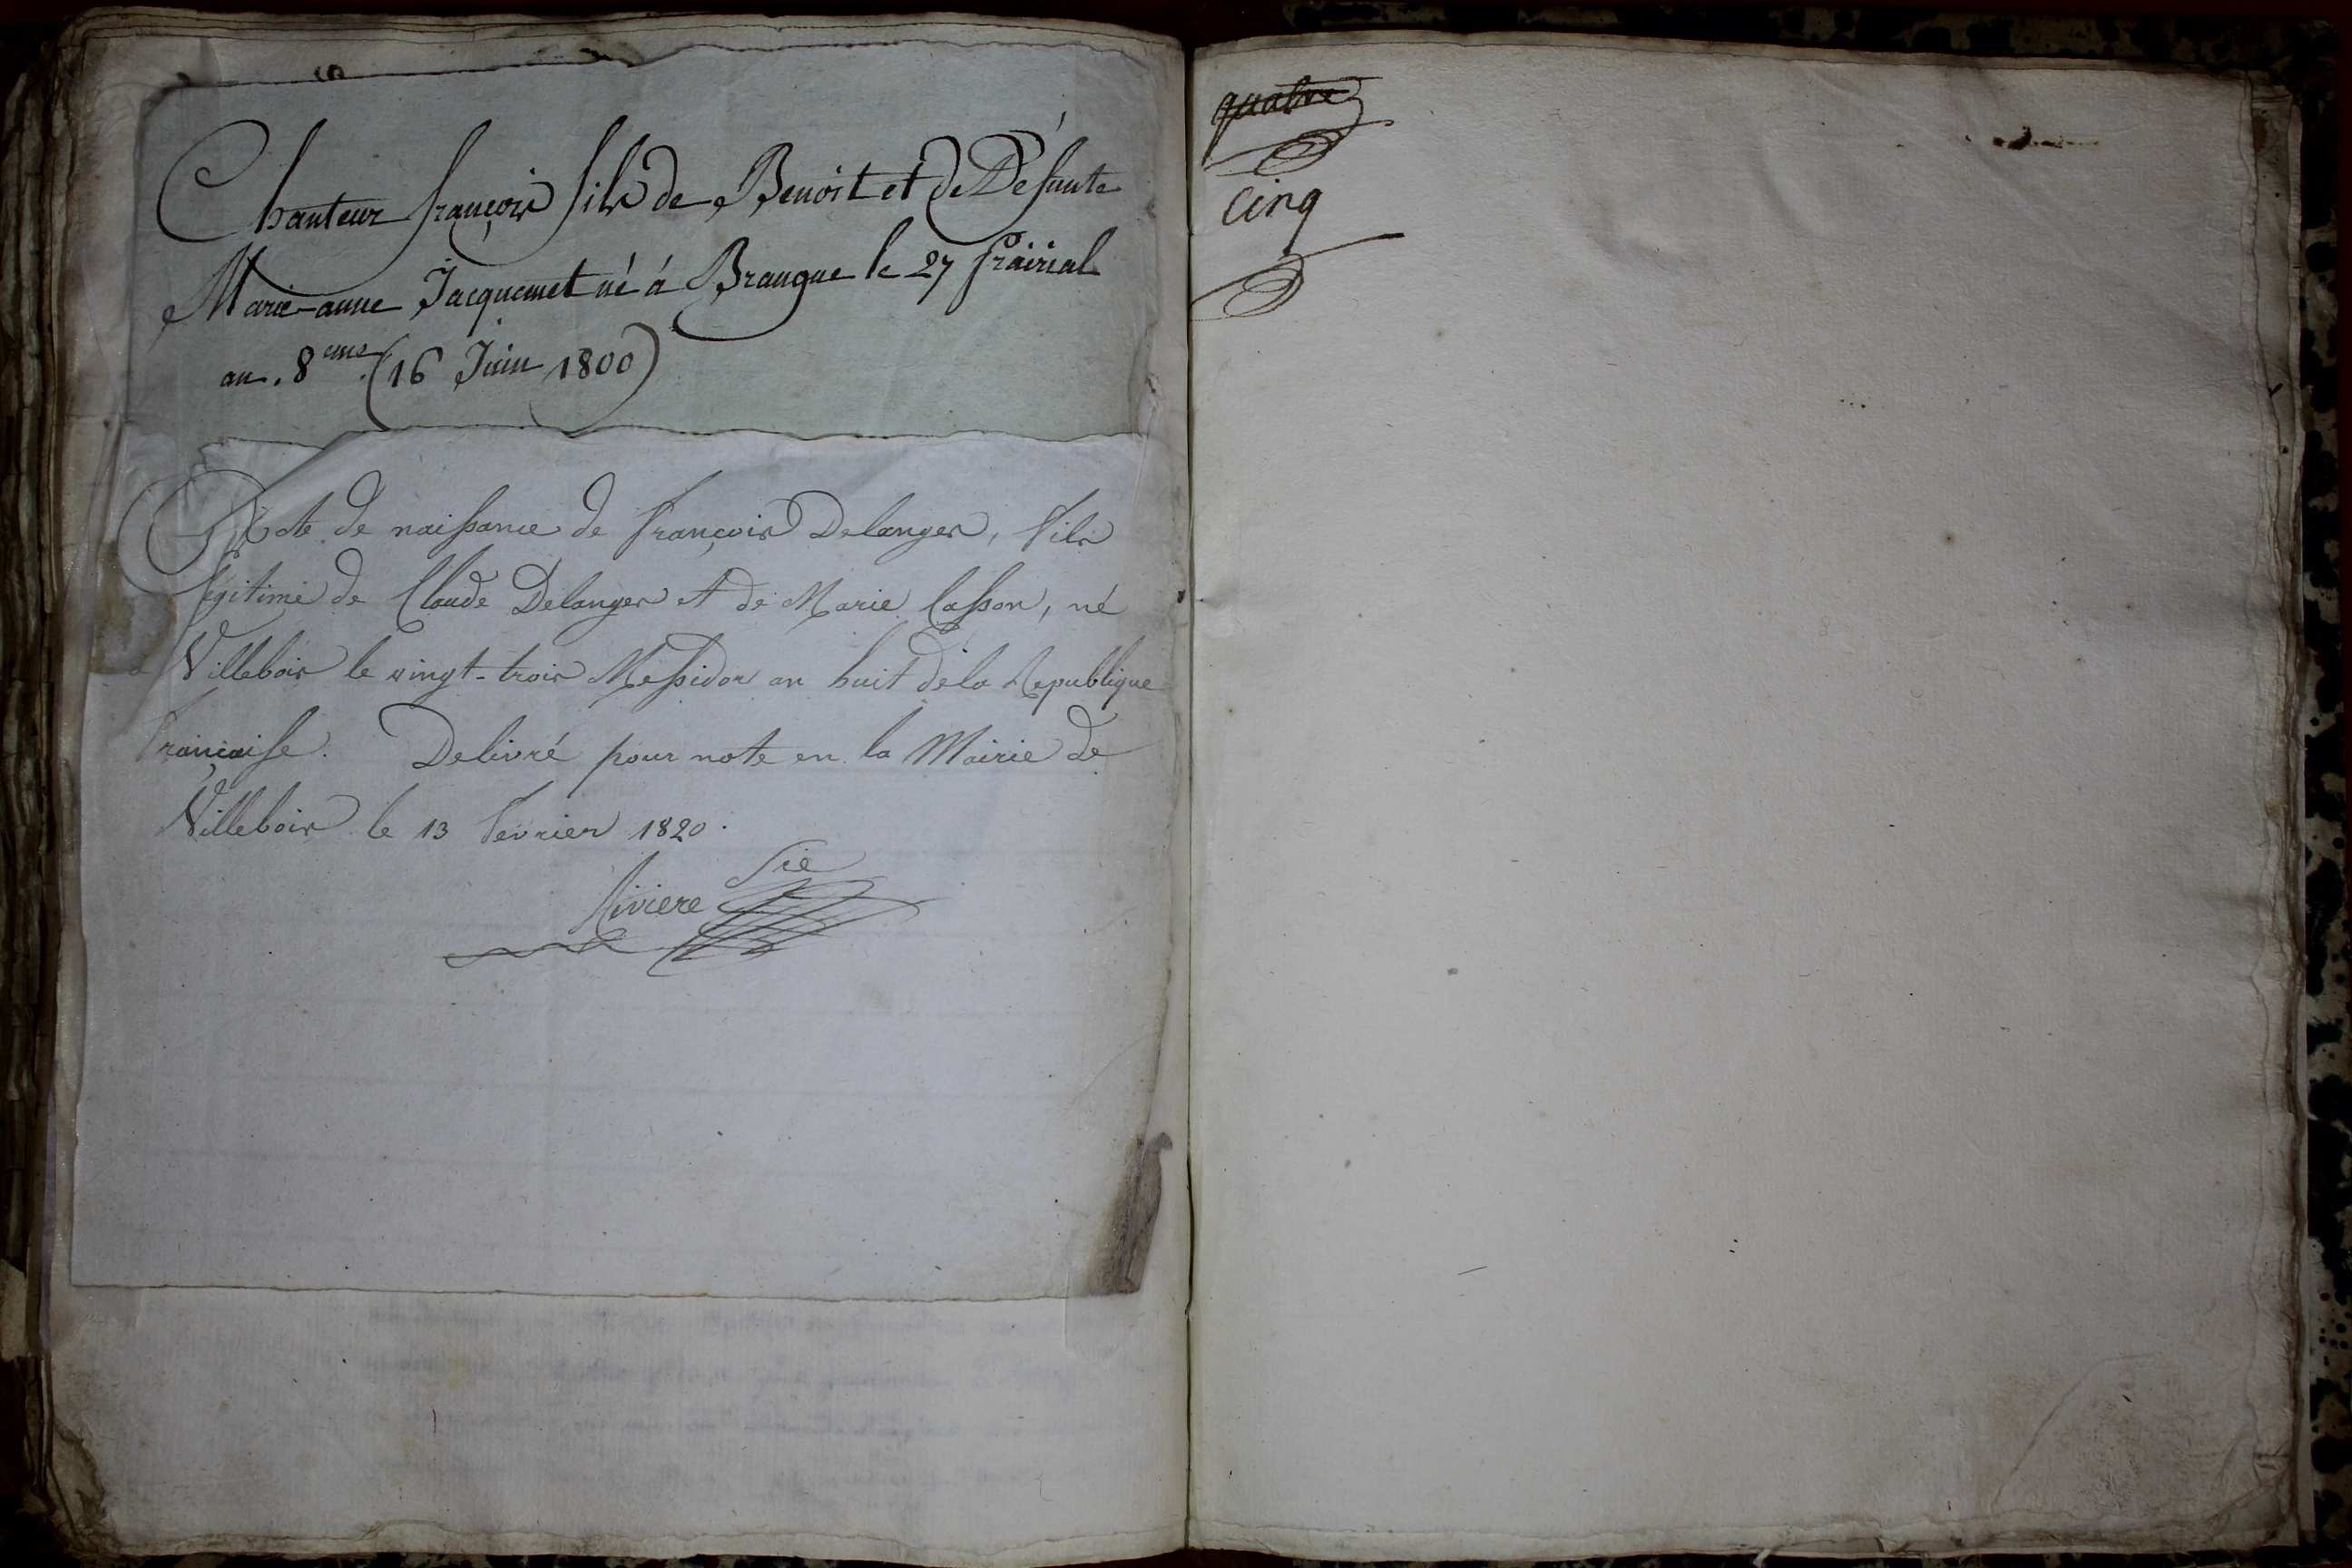 Chanteur françois fils de Benoit et de Défunte
Marie-anne Jacquemet né á Brangue le 27 prairial
an. 8eme. (16 Juin 1800)
Note de naissance de françois Delanger, Fils
légitime de Claude Delanger et de Marie Casson, né
a Villebois le vingt-trois Messidor an huit de la Republique
française. Delivré pour note en la Mairie de
Villebois le 13 fevrier 1820.
Riviere Sre
quatre
cinq